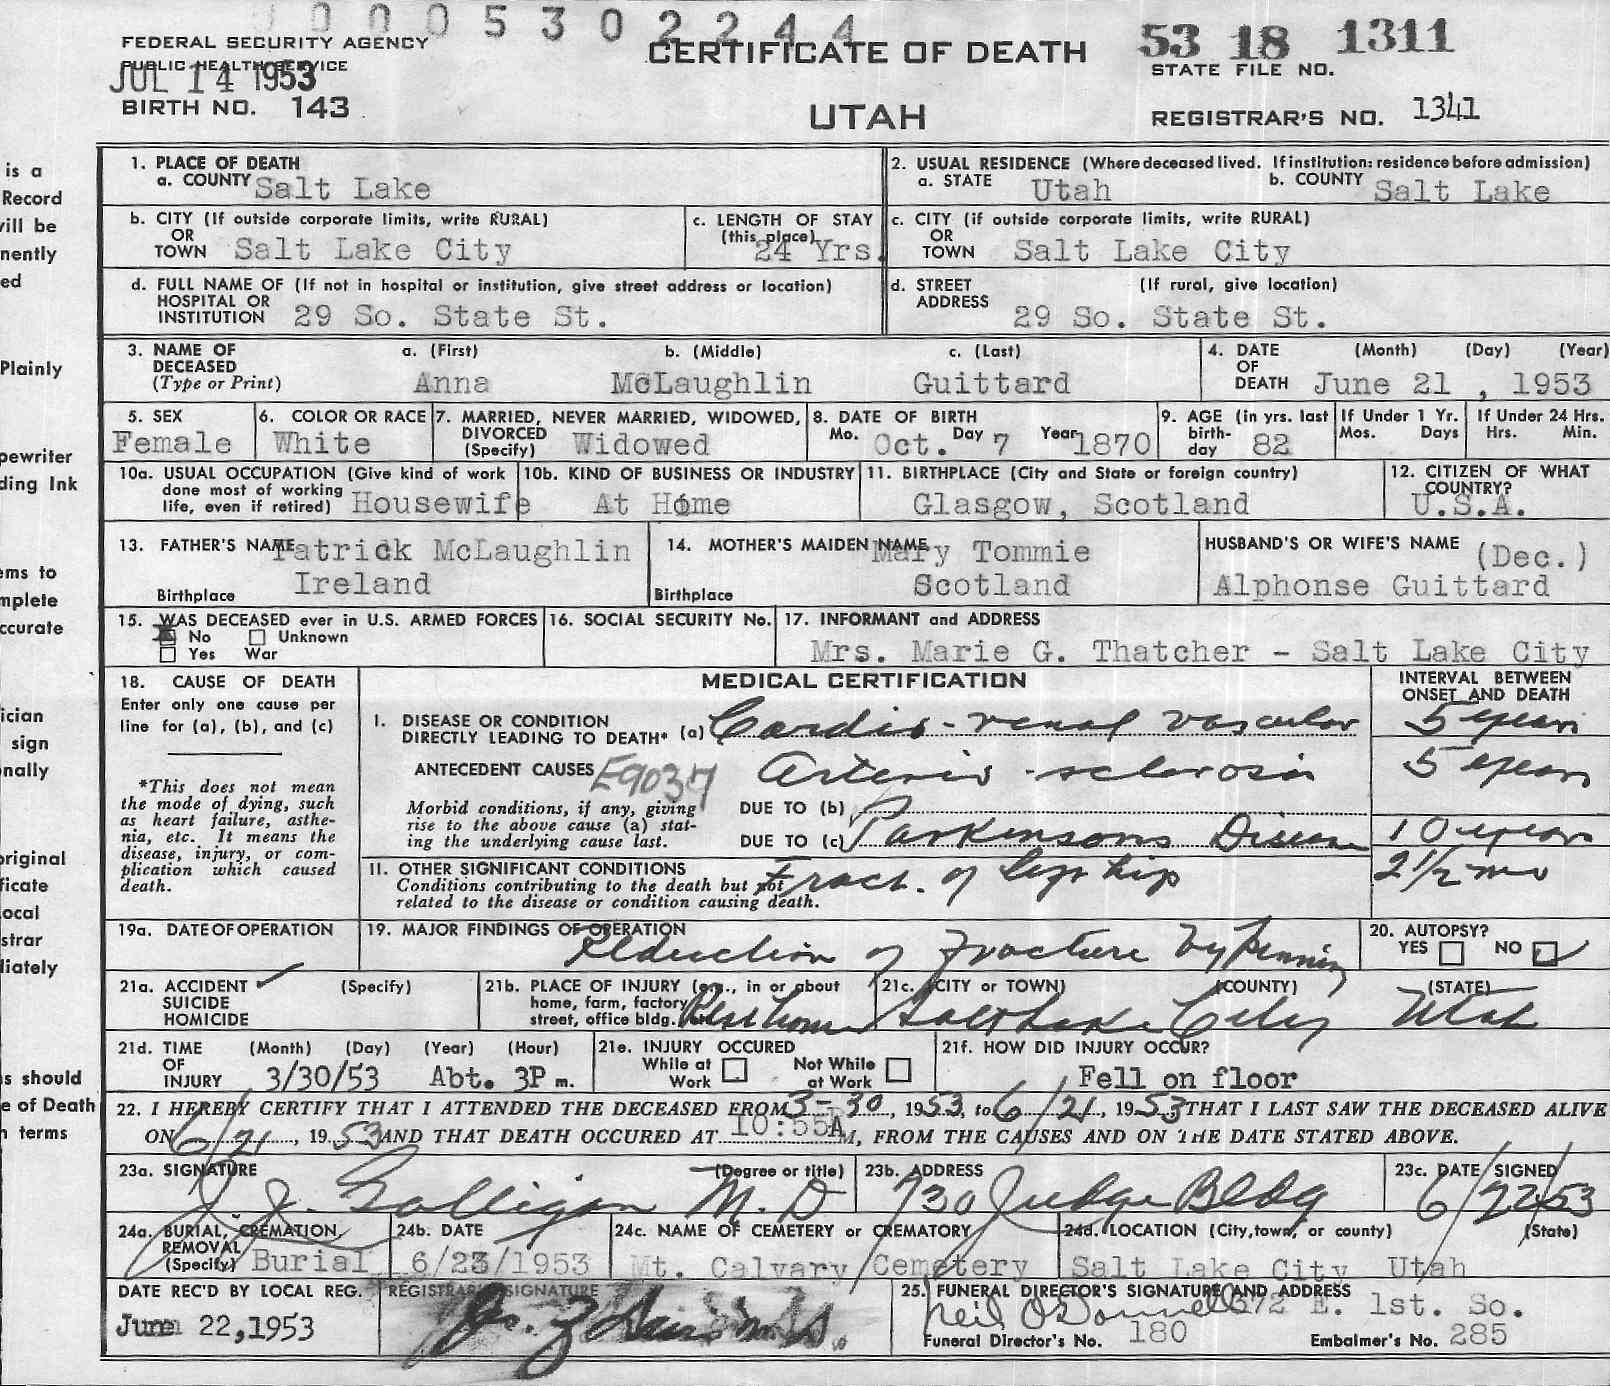 0005302244
FEDERAL SECURITY AGENCY
PUBLIC HEALTH SERVICE
JUL 14 1953
BIRTH NO. 143
CERTIFICATE OF DEATH
UTAH
53 18 1311
STATE FILE NO.
REGISTRAR'S NO. 1341
is a
Record
will be
nently
ed
Plainly
pewriter
ding Ink
ems to
mplete
ccurate
ician
sign
nally
original
ficate
ocal
strar
liately
s should
e of Death
n terms
1. PLACE OF DEATH
a. COUNTY Salt Lake
2. USUAL RESIDENCE (Where deceased lived. If institution: residence before admission)
a. STATE Utah b. COUNTY Salt Lake
b. CITY (If outside corporate limits, write RURAL)
OR
TOWN Salt Lake City
c. LENGTH OF STAY
(this place)
24 Yrs.
c. CITY (if outside corporate limits, write RURAL)
OR
TOWN Salt Lake City
d. FULL NAME OF (If not in hospital or institution, give street address or location)
HOSPITAL OR
INSTITUTION 29 So. State St.
d. STREET (If rural, give location)
ADDRESS 29 So. State St.
3. NAME OF DECEASED (Type or Print)
a. (First) b. (Middle) c. (Last)
Anna McLaughlin Guittard
4. DATE OF DEATH (Month) (Day) (Year)
June 21, 1953
5. SEX
Female
6. COLOR OR RACE
White
7. MARRIED, NEVER MARRIED, WIDOWED,
DIVORCED
(Specify) Widowed
8. DATE OF BIRTH
Mo. Oct. Day 7 Year 1870
9. AGE (in yrs. last
birth-
day 82
If Under 1 Yr.
Mos. Days
If Under 24 Hrs.
Hrs. Min.
10a. USUAL OCCUPATION (Give kind of work
done most of working
life, even if retired) Housewife
10b. KIND OF BUSINESS OR INDUSTRY
At Home
11. BIRTHPLACE (City and State or foreign country)
Glasgow, Scotland
12. CITIZEN OF WHAT
COUNTRY?
U.S.A.
13. FATHER'S NAME Patrick McLaughlin
Birthplace Ireland
14. MOTHER'S MAIDEN NAME Mary Tommie
Birthplace Scotland
HUSBAND'S OR WIFE'S NAME (Dec.)
Alphonse Guittard
15. WAS DECEASED ever in U.S. ARMED FORCES
No Unknown
Yes War
16. SOCIAL SECURITY No.
17. INFORMANT and ADDRESS
Mrs. Marie G. Thatcher - Salt Lake City
18. CAUSE OF DEATH
Enter only one cause per
line for (a), (b), and (c)
*This does not mean
the mode of dying, such
as heart failure, asthe-
nia, etc. It means the
disease, injury, or com-
plication which caused
death.
MEDICAL CERTIFICATION
INTERVAL BETWEEN
ONSET AND DEATH
I. DISEASE OR CONDITION
DIRECTLY LEADING TO DEATH* (a) Cardio-renal vascular 5 years
ANTECEDENT CAUSES Arterio-sclerosis 5 years
Morbid conditions, if any, giving
rise to the above cause (a) stat-
ing the underlying cause last.
DUE TO (b)
DUE TO (c) Parkinsons Disease 10 years
II. OTHER SIGNIFICANT CONDITIONS
Conditions contributing to the death but not
related to the disease or condition causing death.
Fract. of hip 2 1/2 mo
19a. DATE OF OPERATION
19. MAJOR FINDINGS OF OPERATION
Reduction of Fracture by Pinning
20. AUTOPSY?
YES NO
21a. ACCIDENT (Specify)
SUICIDE
HOMICIDE
21b. PLACE OF INJURY (e.g., in or about
home, farm, factory
street, office bldg. etc.) Rest home
21c. (CITY or TOWN) (COUNTY) (STATE)
Salt Lake City Utah
21d. TIME OF INJURY (Month) (Day) (Year) (Hour)
3/30/53 Abt. 3P m.
21e. INJURY OCCURED
While at Work Not While at Work
21f. HOW DID INJURY OCCUR?
Fell on floor
22. I HEREBY CERTIFY THAT I ATTENDED THE DECEASED FROM 3-30, 1953, to 6/21, 1953 THAT I LAST SAW THE DECEASED ALIVE
ON 6/21, 1953 AND THAT DEATH OCCURED AT 10:55A M, FROM THE CAUSES AND ON THE DATE STATED ABOVE.
23a. SIGNATURE (Degree or title)
J. J. Galligan M.D
23b. ADDRESS
730 Judge Bldg
23c. DATE SIGNED
6/22/53
24a. BURIAL, CREMATION,
REMOVAL
(Specify) Burial
24b. DATE
6/23/1953
24c. NAME OF CEMETERY or CREMATORY
Mt. Calvary Cemetery
24d. LOCATION (City, town, or county) (State)
Salt Lake City Utah
DATE REC'D BY LOCAL REG.
June 22, 1953
REGISTRAR'S SIGNATURE
25. FUNERAL DIRECTOR'S SIGNATURE AND ADDRESS
Neil O'Donnell 372 E. 1st. So.
Funeral Director's No. 180 Embalmer's No. 285